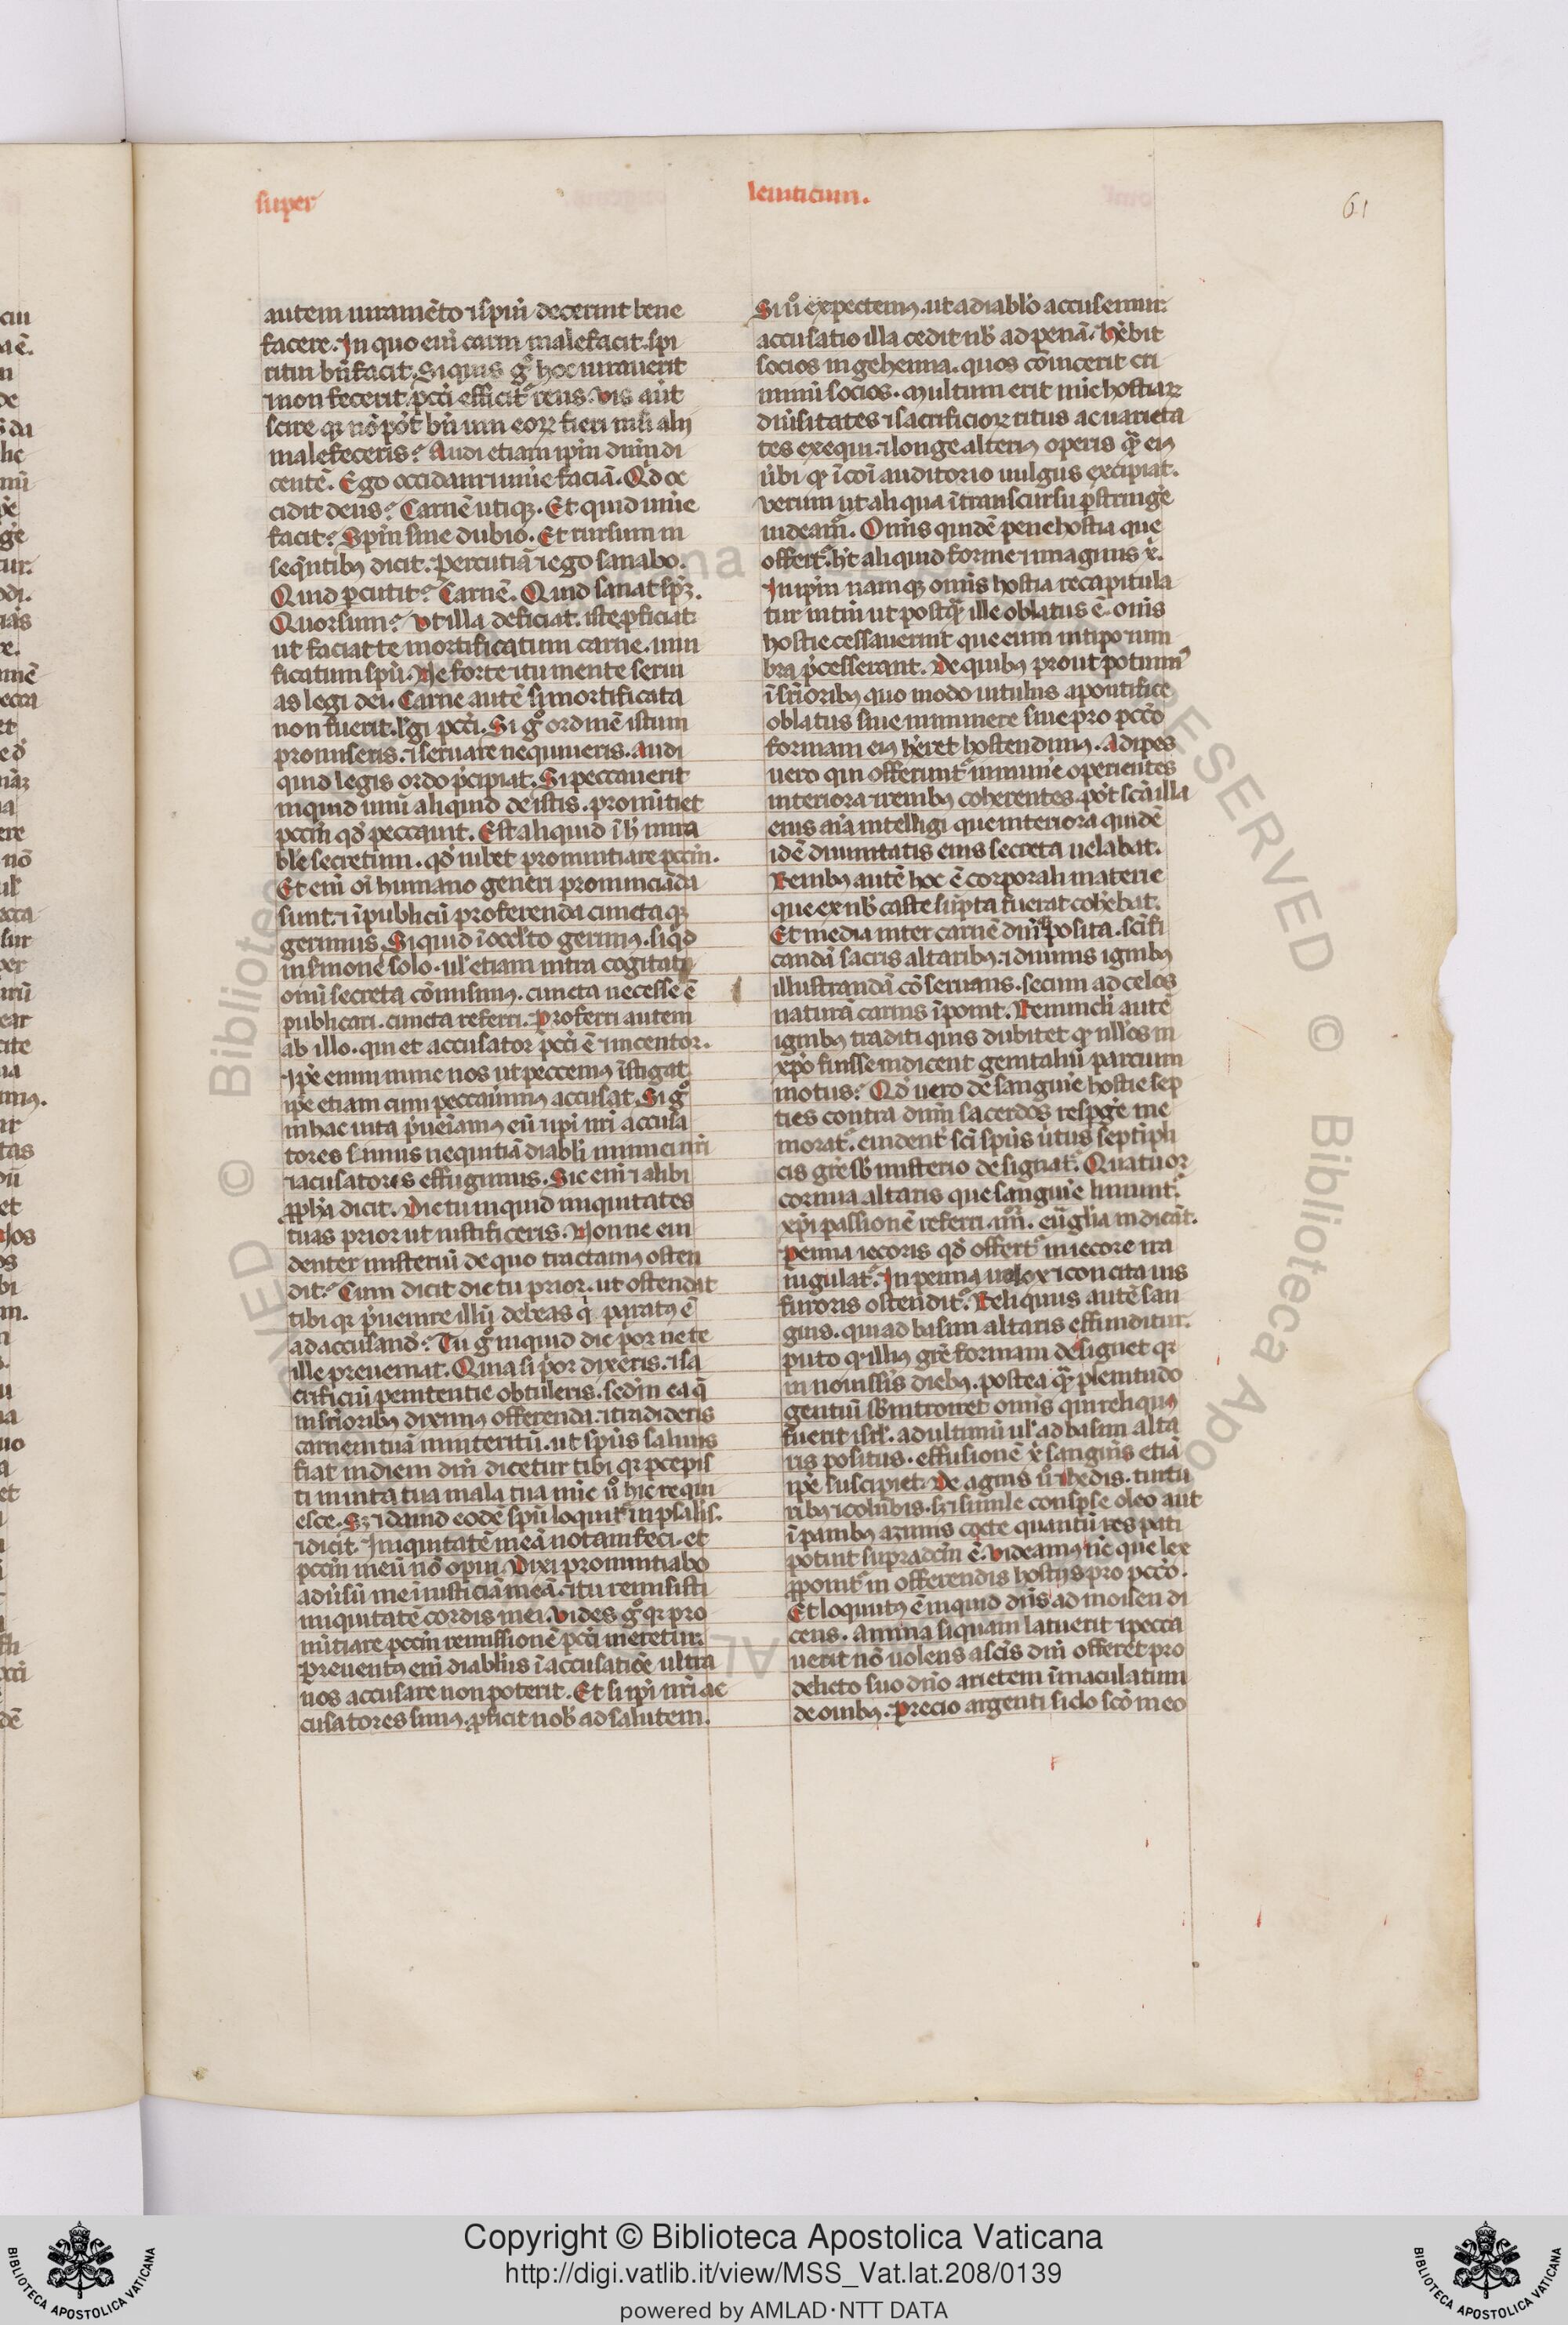 super
leuiticum.
61
autem iuramēto ⁊ spiū decerīnt bene
facere. In quo eni᷑ carni malefacit. spi
ritui bn̄facit. Si quis gͦ hoc iurauerit
⁊ non fecerit. pcc̄i efficit᷑ reus. Vis aūt
scire qꝛ nō pōt bn̄ uni eoꝝ fieri nisi alij
malefeceris? Audi etiam ipm̄ dnm̄ di
centē. Ego occidam ⁊ uiue faciā. Qd̄ oc
cidit deus? Carnē utiqꝫ. Et quid uiue
facit? Spm̄ sine dubio. Et rursum in
seqn̄tibꝰ dicit. Percutiā ⁊ ego sanabo.
Quid ꝑcutit? Carnē. Quid sanat? spꝫ.
Quorsum? Vt illa deficiat. iste ꝓficiat
ut faciat te mortificatum carne. uiui
ficatum spū. Ne forte ⁊ tu mente serui
as legi dei. Carne autē si mortificata
non fuerit. legi pcc̄i. Si gͦ ordinē istum
promiseris. ⁊ seruare nequiueris. Audi
quid legis ordo p̄cipiat. Si peccauerit
inquid unū aliquid de istis. pronūtiet
pccm̄ qd̄ peccauit. Est aliquid ī h̄ mira
bile secretum. qd̄ iubet pronuntiare pccm̄.
Et eni᷑ oī humano generi pronunciāda
sunt. ⁊ ī publicū proferenda cuncta qꝫ
gerimus. Si quid ī occl̄to gerimꝰ. si qd̄
in s̄monē solo. ul̄ etiam intra cogitati
oni᷑ secreta cōmisimꝰ. cuncta necesse ē
publicari. cuncta referri. Proferri autem
ab illo. qui et accusator pcc̄i ē ⁊ incentor.
Ip̄e enim nunc nos ut peccemꝰ īstigat
ip̄e etiam cum peccauimꝰ accusat. Si gͦ
in hac uita p̄ueīamꝰ eū ⁊ ip̄i nr̄i accusa
tores simus nequitiā diabl̄i inimici nr̄i
⁊ acusatoris effugimus. Sic eni᷑ ⁊ alibi
ꝓph̄a dicit. Dic tu inquid iniquitates
tuas prior ut iustificeris. Nonne eui
denter misteriū de quo tractamꝰ osten
dit? Cum dicit dic tu prior. ut ostendat
tibi qꝛ p̄uenire illū debeas q̄ paratꝰ ē
ad accusand̄? Tu gͦ inquid dic p̄or ne te
ille preueniat. Quia si p̄or dixeris. ⁊ sa
crificiū penitentie obtuleris. sed̄m ea q̄
in sup̄ioribꝰ diximꝰ offerenda. ⁊ tradideris
carnem tuā in interitū. ut spūs saluus
fiat in diem dn̄i dicetur tibi qꝛ ꝑcepis
ti in uita tua mala tua nūc ū̊ hic requi
esce. Sꝫ ⁊ dauid eodē spū loquit᷑ in psalis̄.
⁊ dicit. Iniquitatē meā notam feci. et
pccm̄ meū nō opui. Dixi pronuntiabo
adūsū me iniusticiā meā. ⁊ tu remisisti
iniquitatē cordis mei. Vides gͦ qꝛ pro
nūtiare pccm̄ remissionē pcc̄i meretur.
Preuentꝰ eni᷑ diabl̄us ī accusatiōe ultra
nos accusare non poterit. Et si ip̄i nr̄i ac
cusatores simꝰ. ꝓficit nob̄ ad salutem.
Si ū̊ expectemꝰ. ut a diablo accusemur.
accusatio illa cedit nb̄ ad penā. Hēbit
socios in gehenna. quos cōuicerit cri
minū socios. Multum erit nūc hostiaꝝ
diuisitates ⁊ sacrificioꝝ ritus ac uarieta
tes exequi. ⁊ longe alterius operis qᷓ eiꝰ
ubi qꝫ ī cōi auditorio uulgus excipiat.
Verum ut aliqua ī transcursu p̄stringē
uideam᷑. Omīs quidē pene hostia que
offert᷑. hēt aliquid forme ⁊ imaginis xp̄i.
In ipm̄ namqꝫ omīs hostia recapitula
tur in tm̄ ut postqᷓ ille oblatus ē. om̄s
hostie cessauerint que eum in tipo ⁊ um
bra p̄cesserant. De quibꝰ prout potuim᷒
ī sup̄ioribꝰ quo modo uitulus a pontifice
oblatus siue in munere siue pro pcc̄o
formam eiꝰ hēret hostendimꝰ. Adipes
uero qui offerunt᷑ in munē operientes
interiora ⁊ renibꝰ coherentes. pōt scā illa
eius aīa intelligi que interiora quidē
idē diuinitatis eius secreta uelabat.
Renibꝰ autē hoc ē corporali materie
que ex nb̄ caste sūpta fuerat cohēbat.
Et media inter carnē dm̄qꝫ posita. scīfi
candā sacris altaribꝰ. ⁊ diuinis ignibꝰ
illustrandā cō seruans. secum ad celos
naturā carnis īponit. Renunculi autē
ignibꝰ traditi quis dubitet qꝫ nullos in
xp̄o fuisse indicent genitaliū partium
motus? Qd̄ uero de sanguīe hostie sep
ties contra dnm̄ sacerdos respgē me
morat᷑. euident̄ scī spūs ūtus septīpli
cis grē sb̄ misterio designat᷑. Quatuor
cornua altaris que sanguīe liniunt᷑.
xp̄i passionē referri. iiiiᵒʳ. euḡlia indicāt.
Penna iecoris qd̄ offert᷑ in iecore ira
iugulat᷑. In penna uelox ⁊ concita uis
furoris ostendit᷑. Reliquus autē san
guis. qui ad basim altaris effunditur.
puto q̄ illiꝰ grē formam designet qꝛ
in nouissis̄ diebꝰ. postea qᷓ plenitudo
gentiū sb̄introiret omīs qui reliquꝰ
fuerit isrl̄. ad ultimū ul̄ ad basim alta
ris positus. effusionē xp̄i sanguīs etiā
ip̄e suscipiet. De agnis ū̊ ⁊ hedis. turtu
ribꝰ ⁊ colūbis. sꝫ ⁊ simile consp̄se oleo aut
ī panibꝰ azimis cocte quantū res pati
potuit supradcm̄ ē. Videamꝰ nc̄ que lex
ꝓponit᷑ in offerendis hostijs pro pcc̄o.
Et loquutꝰ ē inquid dn̄s ad moisen di
cens. Anima siquam latuerit ⁊ pecca
uerit nō uolens a scīs dn̄i offeret pro
delicto suo dn̄o arietem īmaculatum
de ouibꝰ. Precio argenti siclo scō in eo
Copyright © Biblioteca Apostolica Vaticana
http://digi.vatlib.it/view/MSS_Vat.lat.208/0139
powered by AMLAD·NTT DATA